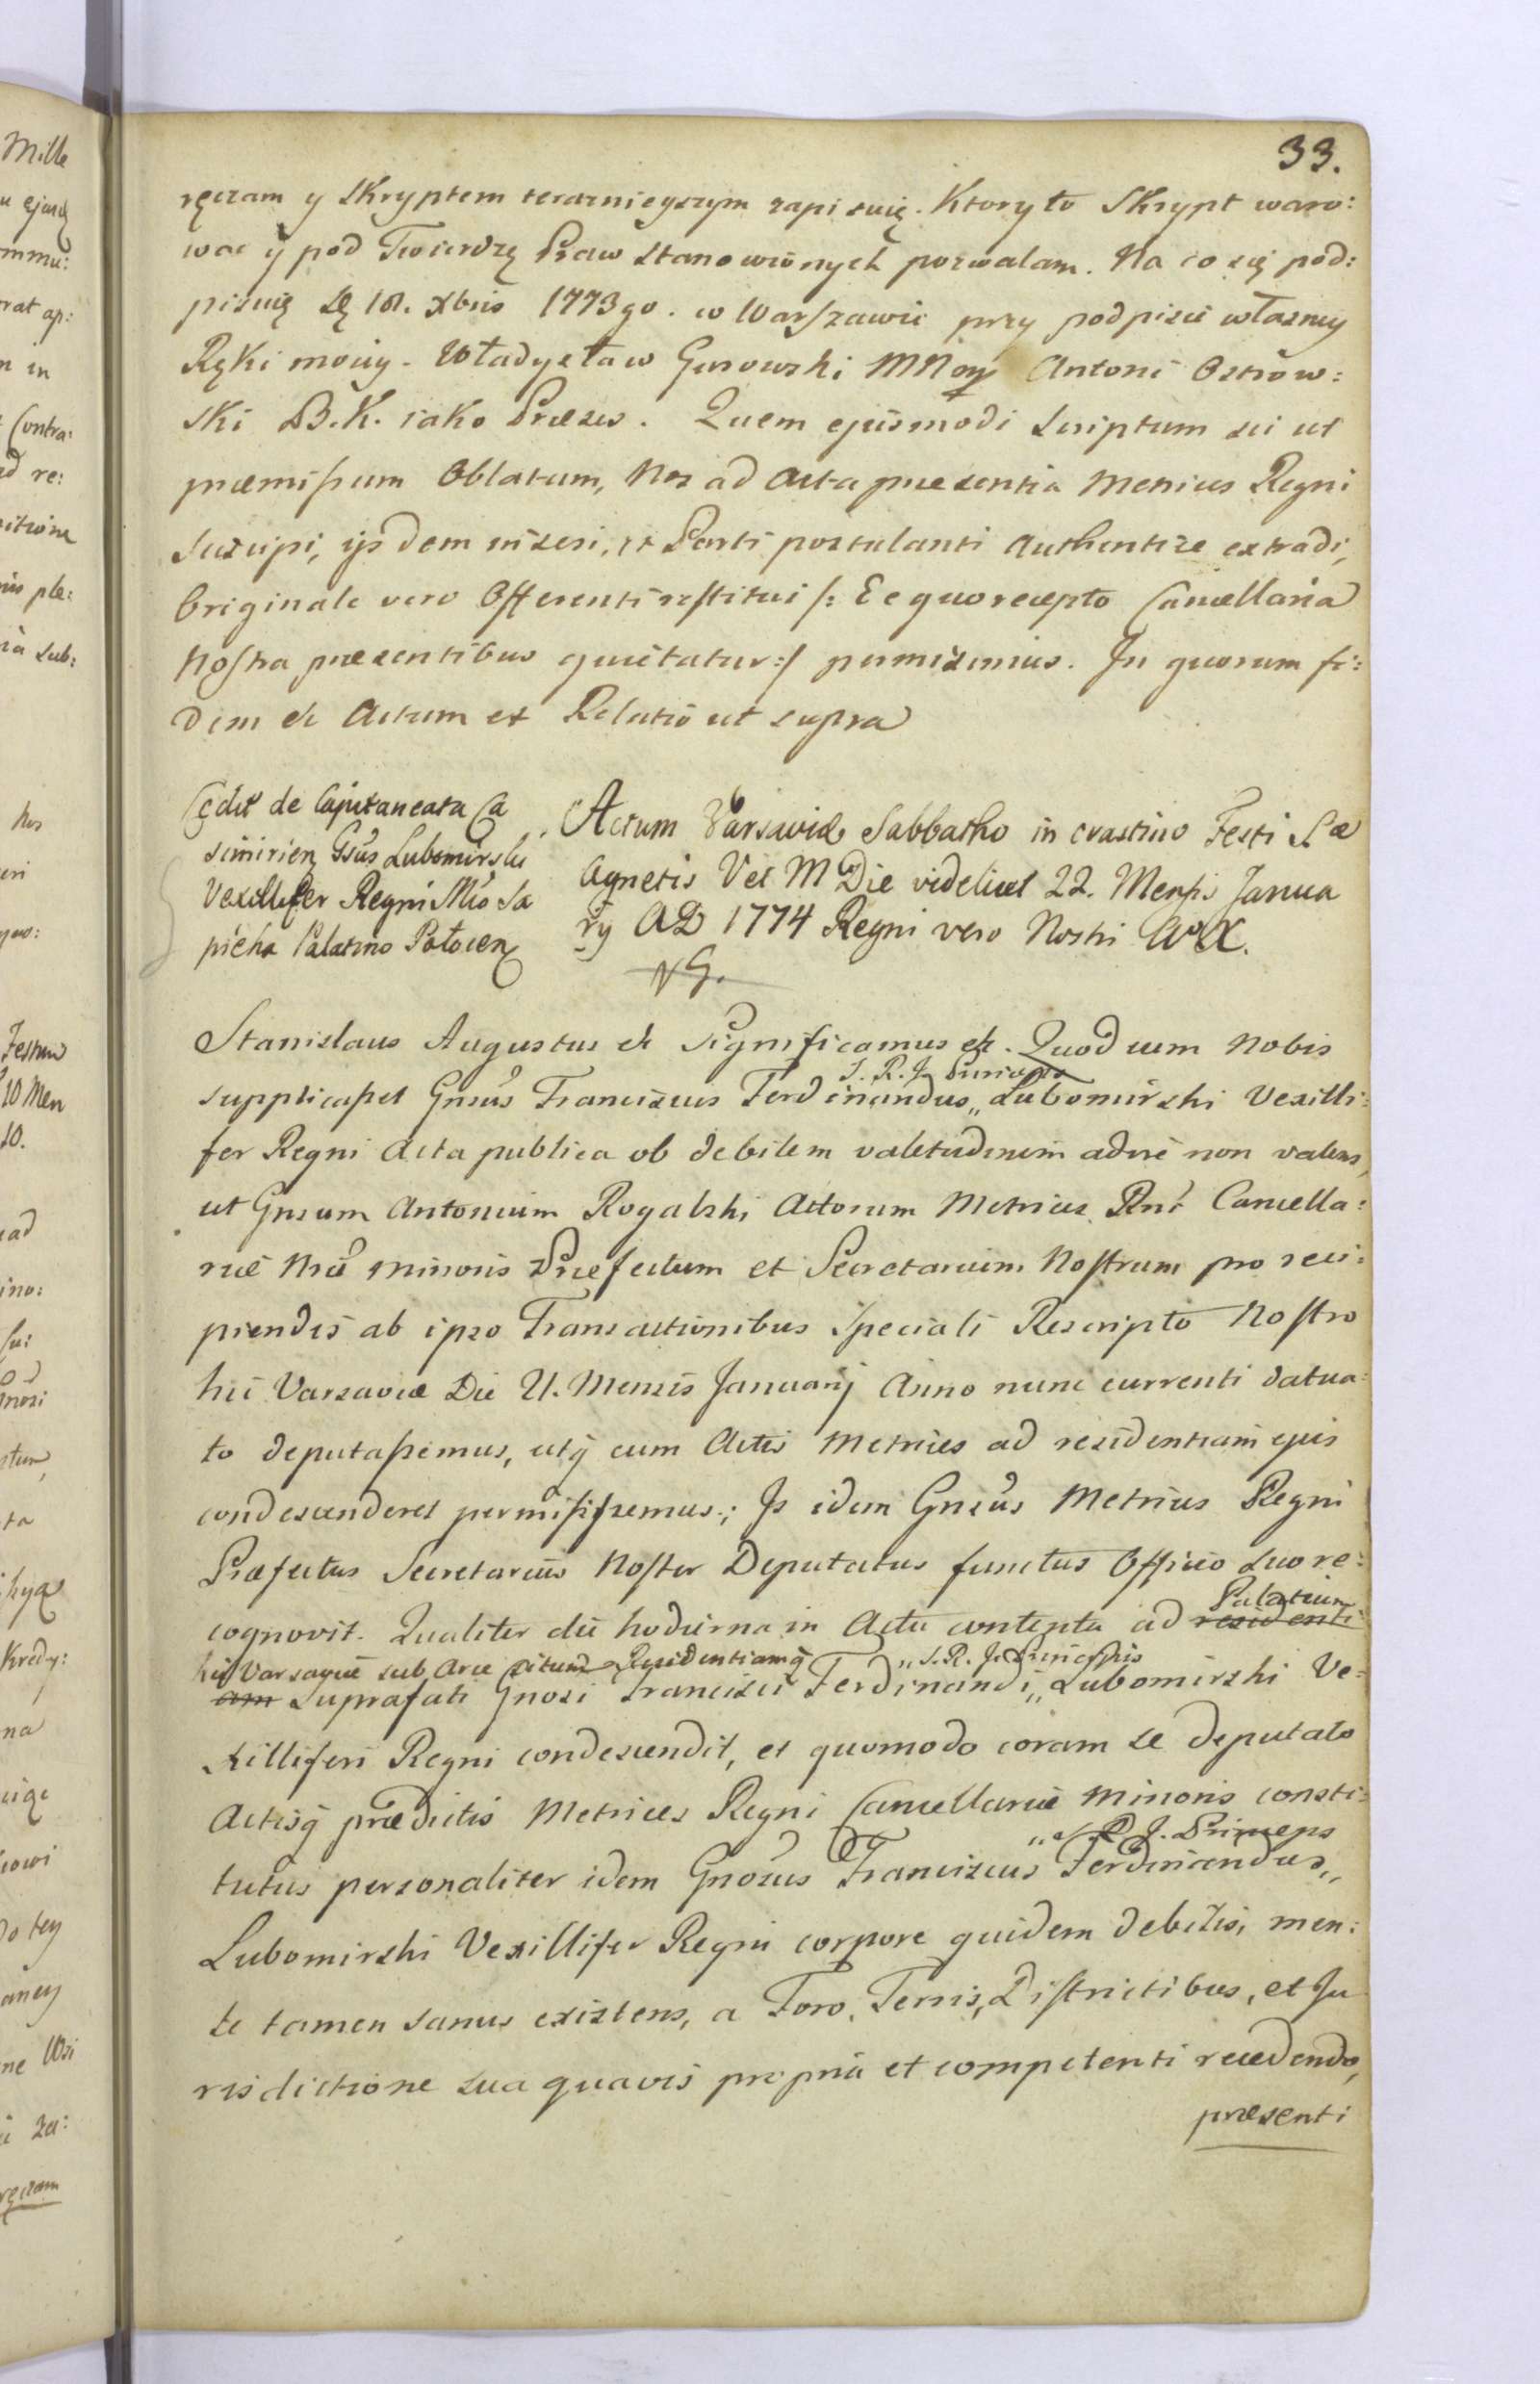 33.
ręczam y Skryptem teraznieyszym zapisuię. Ktory to Skrypt waro:
wac y pod Twierdzę Praw stanowiōnych pozwalam. Na co się pod:
pisuię Dę 18. xbris 1773go. w Warszawie przy podpisie własney
Ręki moiey. Władysław Gurowski MN Antoni Ostrow:
ski B.K. iako Præses. Quem ejusmodi Scriptum sic ut
præmissum Oblatum, Nos ad Acta præsentia Metrices Regni
suscipi, ijsdem inseri, et Parti postulanti Authentice extradi,
Originale vero Offerenti restitui /: De quo recepto Cancellaria
Nostra præsentibus quietatur :/ permisimus. In quorum fi:
dem etc Actum et Relatio ut supra
Cedit de Capitaneatu Ca
simirien Gsus Lubomirski
Vexillifer Regni Mco Sa
pieha Palatino Polocen
Actum Varsaviæ Sabbatho in crastino Festi S æ
Agnetis Vet M Die videlicet 22. Mensis Janua
ry AD 1774 Regni vero Nostri Ao X.
NG.
Stanislaus Augustus etc Significamus etc. Quod cum Nobis
S. R. J. Princeps
supplicasset Gnsus Franciscus Ferdinandus,, Lubomirski Vexilli:
fer Regni Acta publica ob debilem valetudinem adire non valens,
ut Gnsum Antonium Rogalski Actorum Metrices Rni Cancella:
riæ Nræ Minoris Præfectum et Secretarium Nostrum pro reci:
piendis ab ipso Transactionibus Speciali Rescripto Nostro
hic Varsaviæ Die 21. Mensis Januarij Anno nunc currenti datua:
to deputassemus, utq cum Actis Metrices ad residentiam ejus
condescenderet permisissemus; Is idem Gnsus Metrices Regni
Præfectus Secretarius Noster Deputatus functus Officio suo re:
Palatium
cognovit. Qualiter die hodierna in Actu contenta ad residenti
hic Varsaviæ sub Arce situm Residentiamq ,,S. R. J. Principis
am Suprafati Gnosi Francisci Ferdinandi,, Lubomirski Ve:
xilliferi Regni condescendit, et quomodo coram se deputato
Actisq prædictis Metrices Regni Cancellariæ Minoris consti:
,,S. R. J. Princeps
tutus personaliter idem Gnosus Franciscus Ferdinandus,,
Lubomirski Vexillifer Regni corpore quidem debilis, men:
te tamen sanus existens, a Foro, Terris, Districtibus, et Ju
risdictione sua quavis propria et competenti recedendo,
præsenti